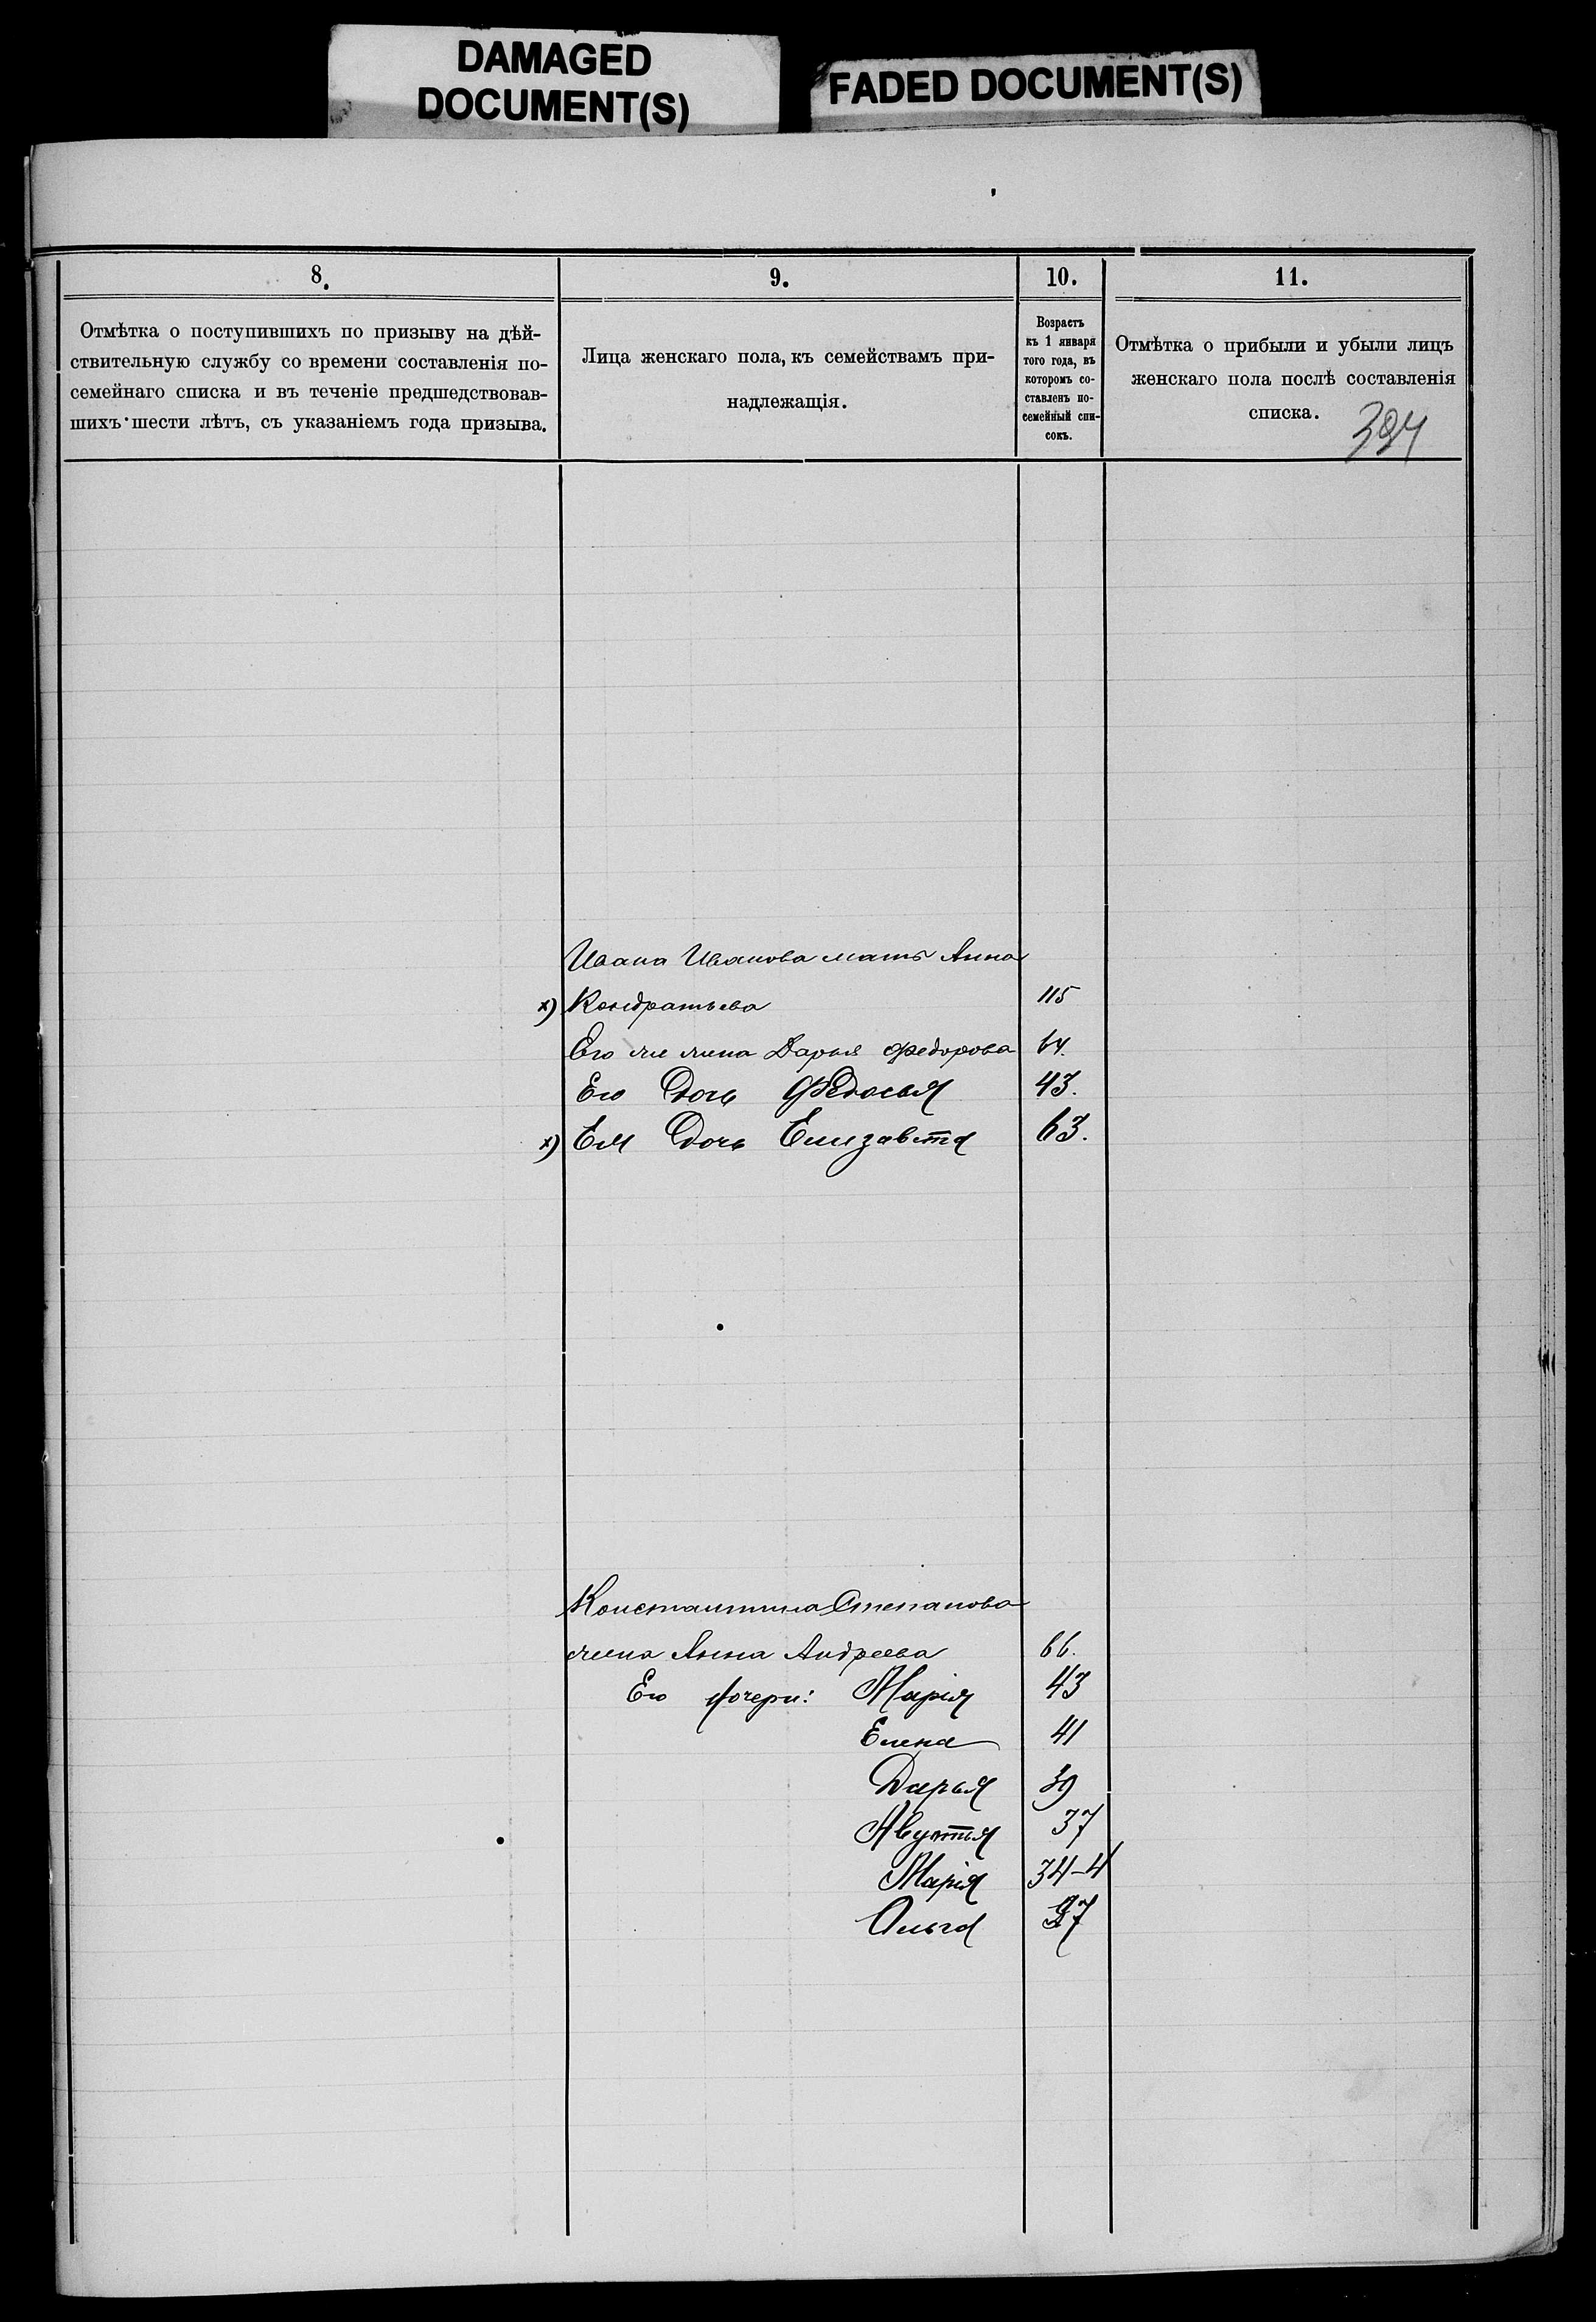 DAMAGED
DOCUMENT(S)
FADED DOCUMENT(S)
8.
9.
10.
11.
Отмѣтка о поступившихъ по призыву на дѣй-
ствительную службу со времени составленія по-
семейнаго списка и въ теченіе предшедствовав-
шихъ шести лѣтъ, съ указаніемъ года призыва.
Лица женскаго пола, къ семействамъ при-
надлежащія.
Возрастъ
къ 1 января
того года, въ
которомъ со-
ставленъ по-
семейный спи-
сокъ.
Отмѣтка о прибыли и убыли лицъ
женскаго пола послѣ составленія
списка.
394
Ивана Иванова мать Анна
х) Кондратьева 115
Его же жена Дарья Федорова 64.
Его Дочь Федосья 43.
х) Ея Дочь Елизавета 63.
Константина Степанова
жена Анна Андреева 66.
Его дочери: Марія 43
Елена 41
Дарья 39
37
Марія 34-4
Ольга 27